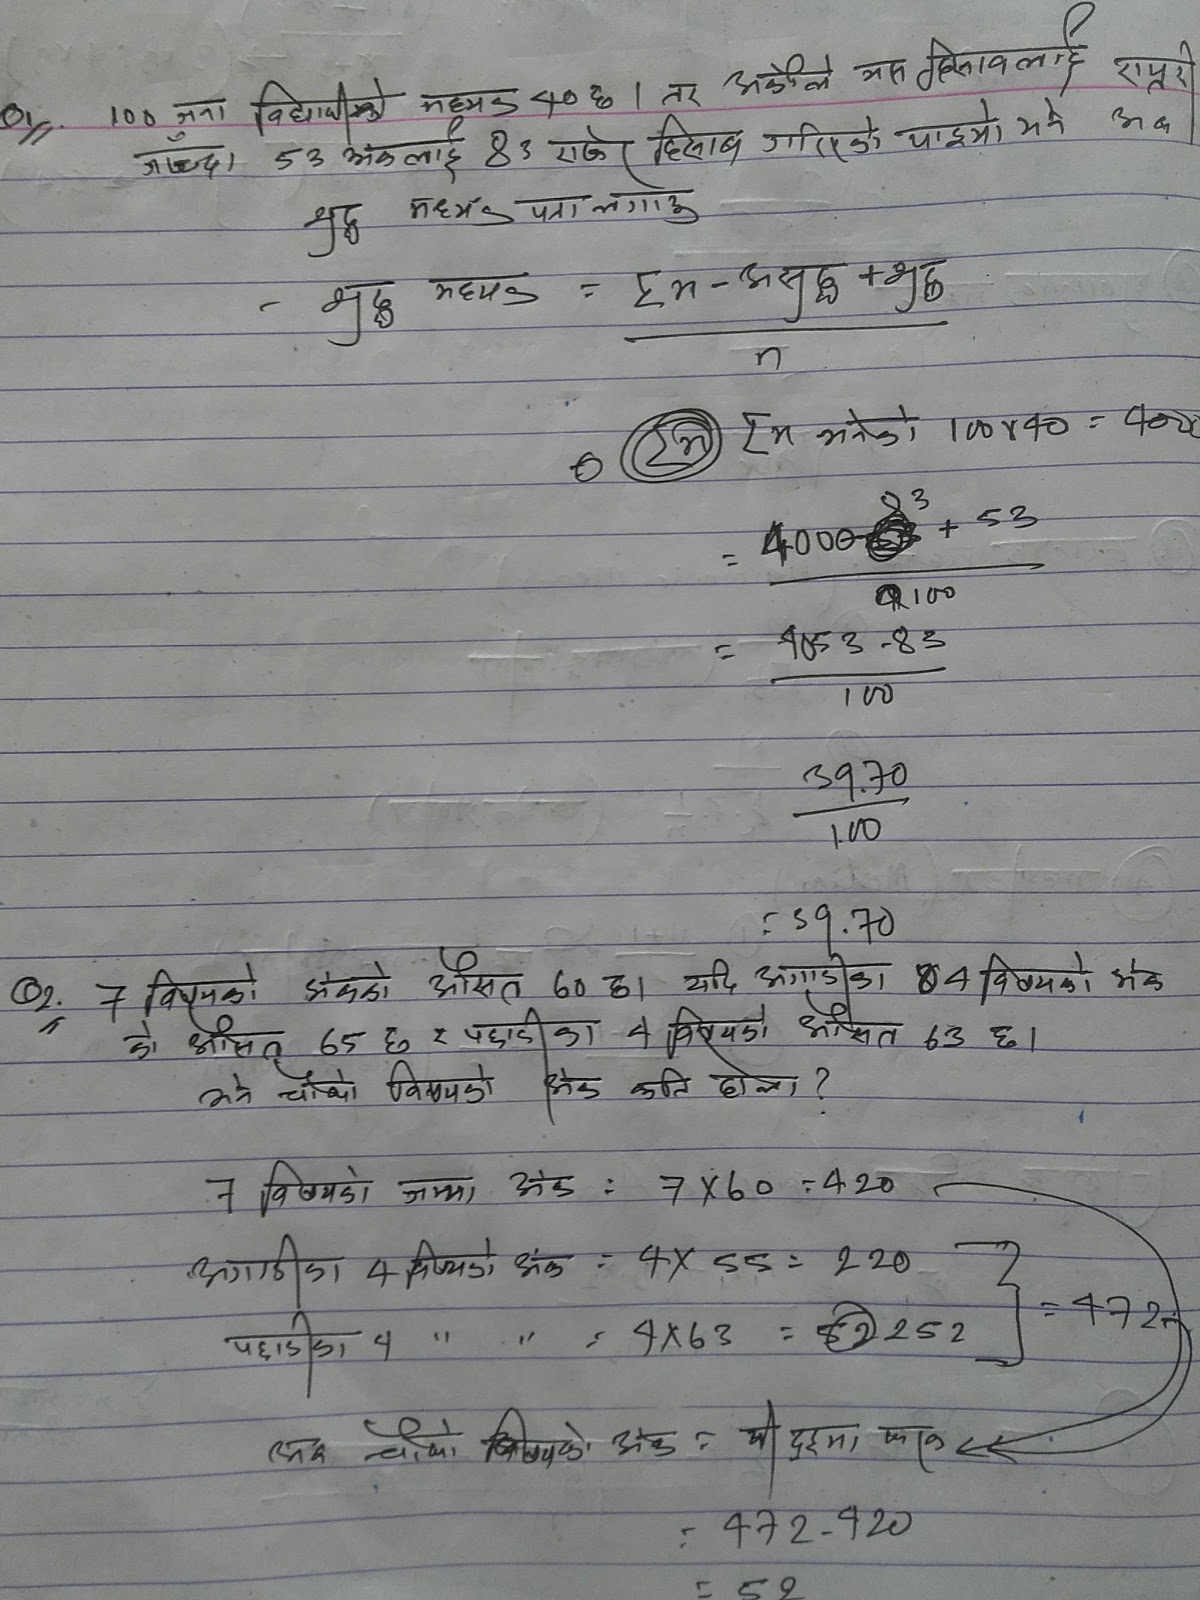 Q1. 100 जना विद्यार्थीको मध्यक 40 छ। तर अर्कोले यस हिसाबलाई राम्ररी
जाँच्दा 53 अंकलाई 83 राखेर हिसाब गरिएको पाइयो भने अब
शुद्ध मध्यक पत्ता लगाऊ
- शुद्ध मध्यक = Σx - असुद्ध + शुद्ध
n
Σx भनेको 100x40 = 4000
= 4000-83 + 53
100
= 4053-83
100
39.70
100
= 39.70
Q2. 7 विषयको अंकको औसित 60 छ। यदि अगाडीका 4 विषयको अंक
को औसित 65 छ र पछाडीका 4 विषयको औसित 63 छ।
भने चौथो विषयको अंक कति होला?
7 विषयको जम्मा अंक = 7x60 = 420
अगाडीका 4 विषयको अंक = 4x 55 = 220
पछाडीका 4 " " = 4x63 = 252
= 472
अब चौथो विषयको अंक = यी दुइमा फरक
= 472-420
= 52